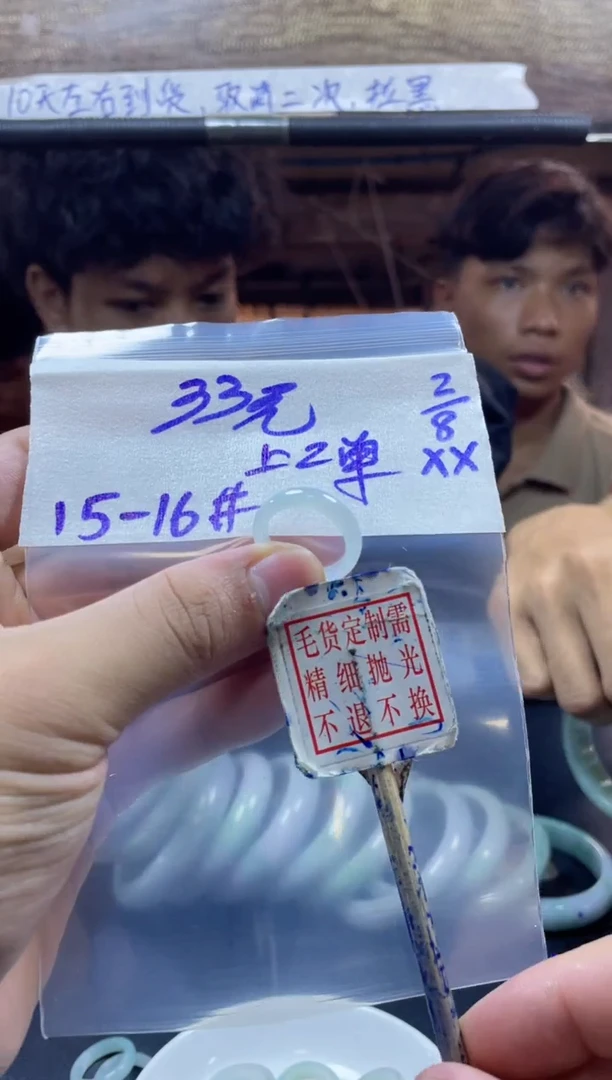 10天左右到货，取消二次，拉黑
33元
上2单
2/8
XX
15-16#
毛货定制需
精细抛光
不退不换